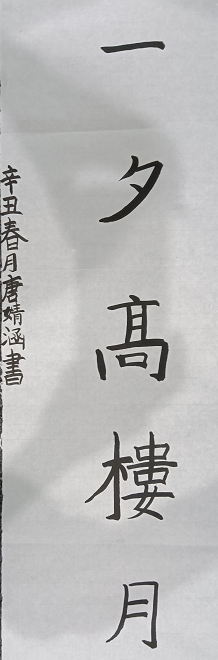 一夕髙樓月
辛丑春月唐婧涵書